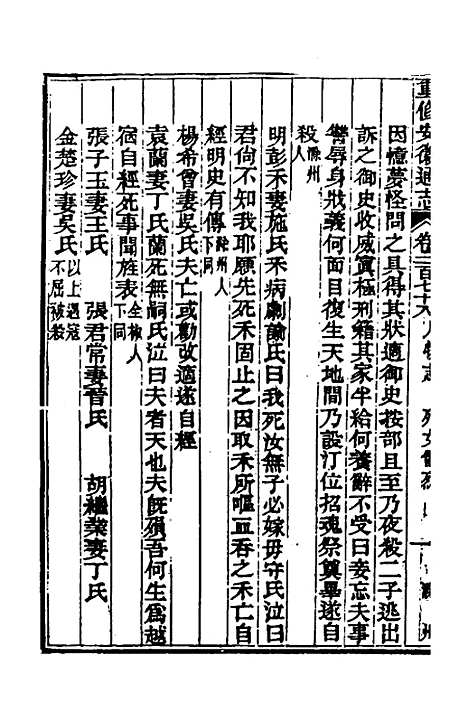 重修安徽通志 卷二百七十八 人物志 列女
因憶夢怪問之具得其狀適御史按部且至乃夜殺二子逃出
訴之御史收威寘極刑籍其家半給何養辭不受曰妾忘夫事
讐辱身戕義何面目復生天地間乃設汀位招魂祭奠畢遂自
殺滁州人
明彭禾妻施氏禾病劇諭氏曰我死汝無子必嫁毋守氏泣曰
君尙不知我耶願先死禾固止之因取禾所嘔血吞之禾亡自
經明史有傳滁州人下同
楊希曾妻吳氏夫亡或勸改適遂自經
袁蘭妻丁氏蘭死無嗣氏泣曰夫者天也夫旣殞吾何生爲越
宿自經死事聞旌表全椒人下同
張子玉妻王氏 張君常妻晉氏 胡繼業妻丁氏
金楚珍妻吳氏以上遇寇不屈被殺